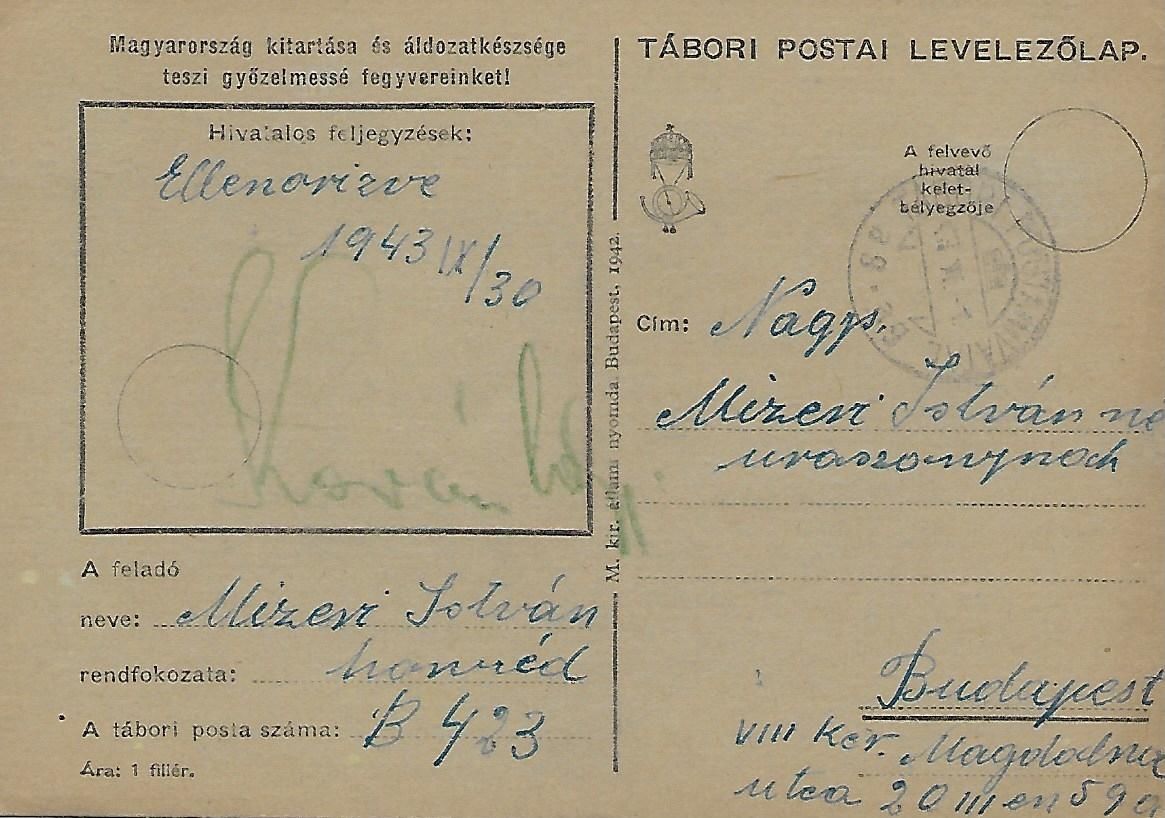 Magyarország kitartása és áldozatkészsége
teszi győzelmessé fegyvereinket!
Hivatalos feljegyzések:
Ellenorizve
1943 IX/30
A feladó
neve: Mizeri István
rendfokozata: honvéd
A tábori posta száma: B 423
Ára: 1 fillér.
M. kir. állami nyomda, Budapest, 1942.
TÁBORI POSTAI LEVELEZŐLAP.
A felvevő
hivatal
kelet-
bélyegzője
Cím: Nagys.
Mizeri István né
uraszonynock
Budapest
VIII Ker. Magdolna
utca 20 III em 59 a